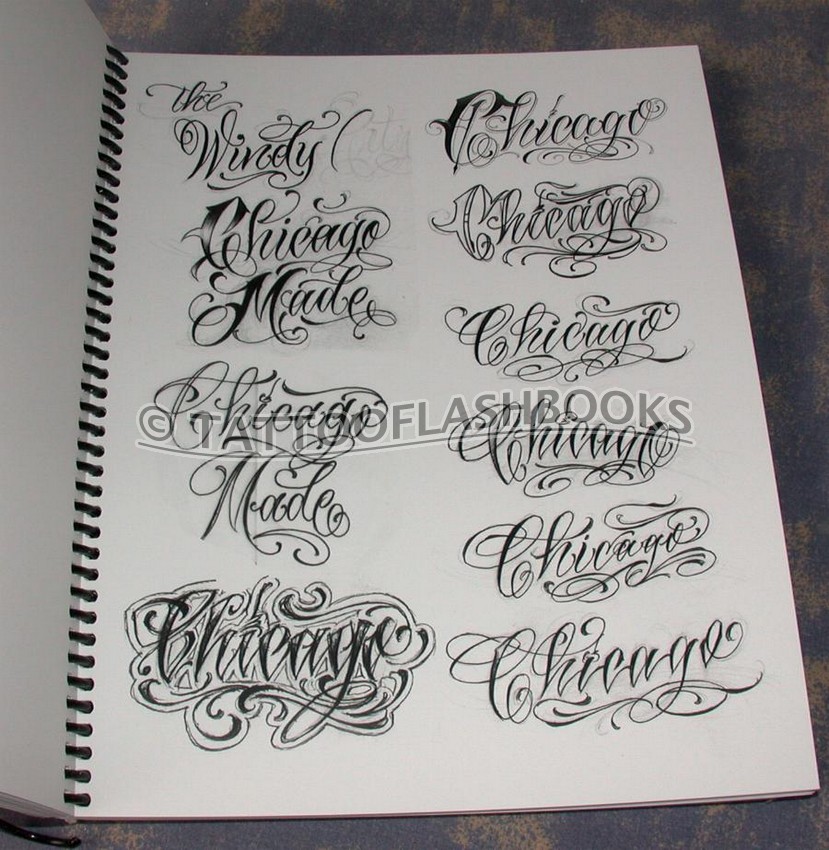 the
Windy City
Chicago
Made
Chicago
Made
Chicago
Chicago
Chicago
Chicago
Chicago
Chicago
Chicago
© TATTOOFLASHBOOKS